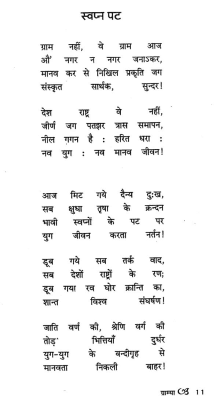 स्वप्न पट
ग्राम नहीं, वे ग्राम आज
औ' नगर न नगर जनाऽकर,
मानव कर से निखिल प्रकृति जग
संस्कृत सार्थक, सुन्दर!
देश राष्ट्र वे नहीं,
जीर्ण जग पतझर त्रास समापन,
नील गगन है : हरित धरा :
नव युग : नव मानव जीवन!
आज मिट गये दैन्य दुःख,
सब क्षुधा तृषा के क्रन्दन
भावी स्वप्नों के पट पर
युग जीवन करता नर्तन!
डूब गये सब तर्क वाद,
सब देशों राष्ट्रों के रण;
डूब गया रव घोर क्रान्ति का,
शान्त विश्व संघर्षण!
जाति वर्ण की, श्रेणि वर्ग की
तोड़ भित्तियाँ दुर्धर
युग-युग के बन्दीगृह से
मानवता निकली बाहर!
ग्राम्या 11